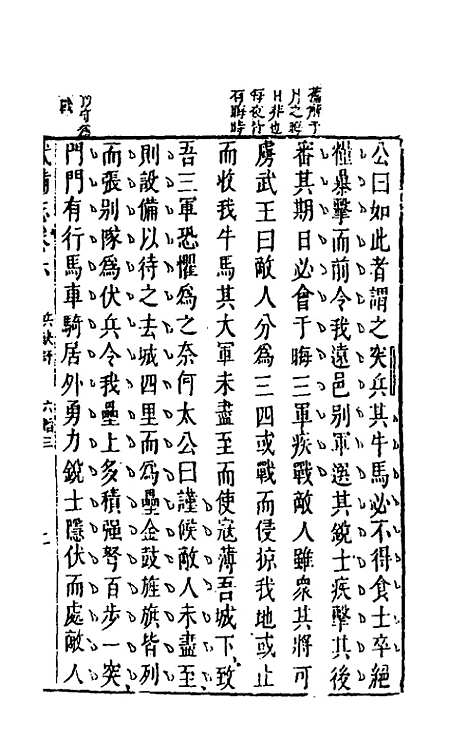 舊解于
月之晦
日非也
有晦時
公曰如此者謂之突兵其牛馬必不得食士卒絕
糧暴擊而前令我遠邑別軍選其銳士疾擊其後
審其期日必會于晦三軍疾戰敵人雖衆其將可
虜武王曰敵人分為三四或戰而侵掠我地或止
而收我牛馬其大軍未盡至而使寇薄吾城下致
吾三軍恐懼為之奈何太公曰謹候敵人未盡至
則設備以待之去城四里而為壘金鼓旌旗皆列
而張別隊為伏兵令我壘上多積强弩百步一突
門門有行馬車騎居外勇力銳士隱伏而處敵人
武備志卷六 兵訣評 六韜三